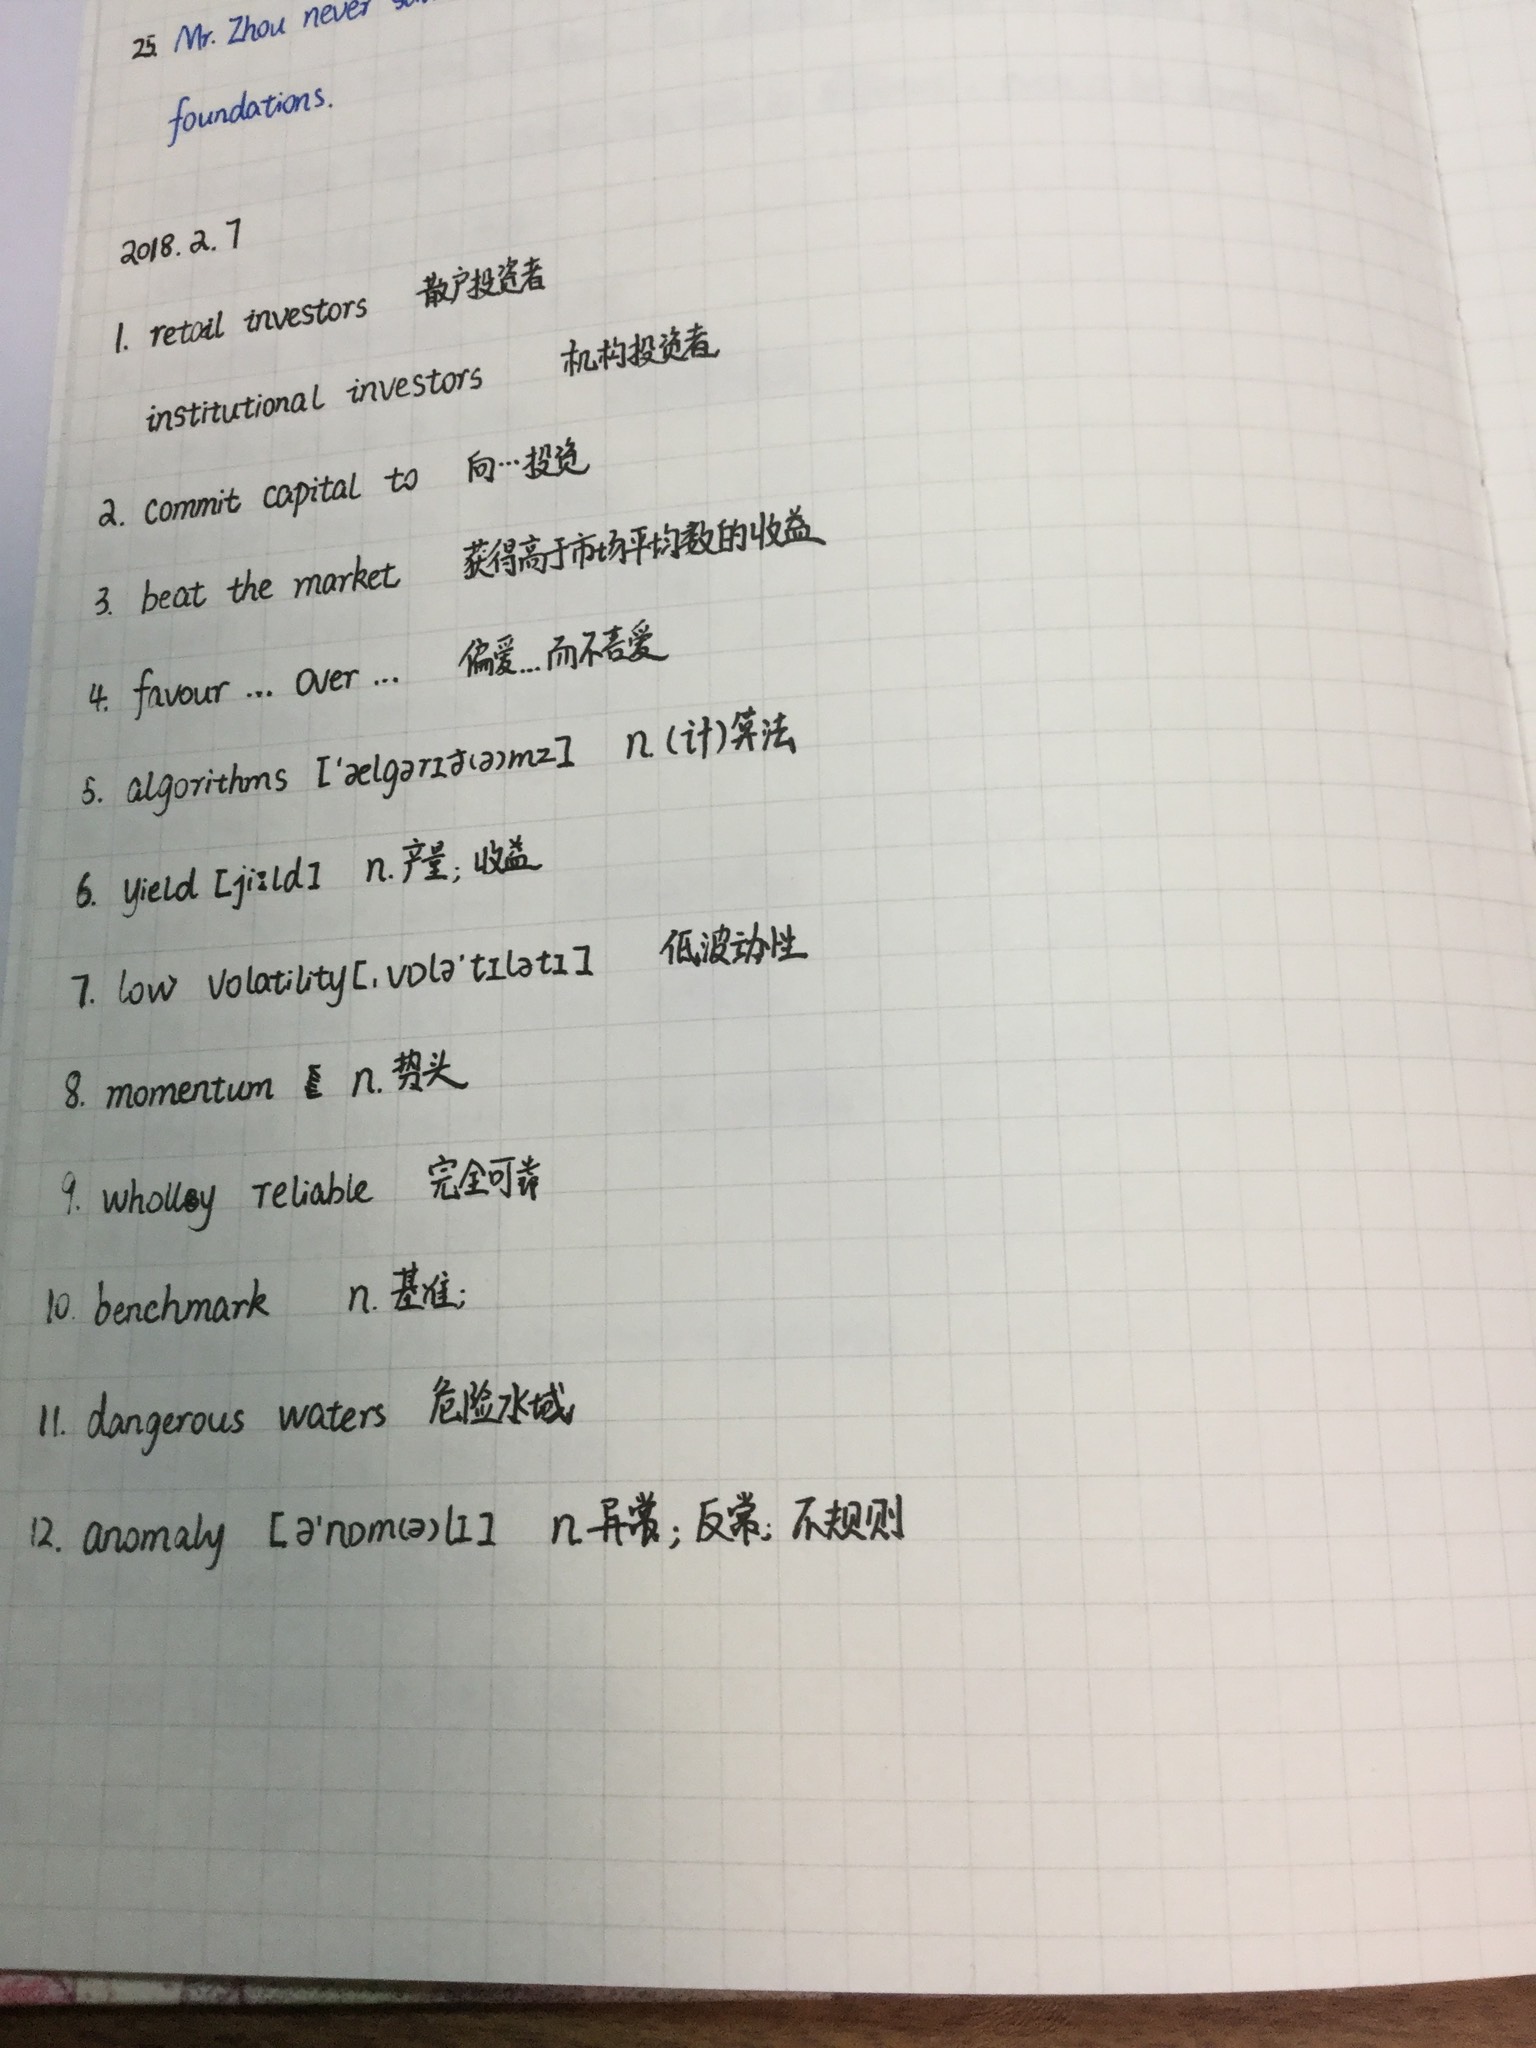 25. Mr. Zhou never
foundations.
2018.2.7
1. retail investors 散户投资者
institutional investors 机构投资者
2. commit capital to 向…投资
3. beat the market 获得高于市场平均数的收益
4. favour ... over ... 偏爱...而不喜爱
5. algorithms ['ælgərɪð(ə)mz] n. (计)算法
6. yield [ji:ld] n. 产量; 收益
7. low volatility [,vɒlə'tɪlətɪ] 低波动性
8. momentum n. 势头
9. wholly reliable 完全可靠
10. benchmark n. 基准;
11. dangerous waters 危险水域
12. anomaly [ə'nɒm(ə)lɪ] n. 异常; 反常; 不规则